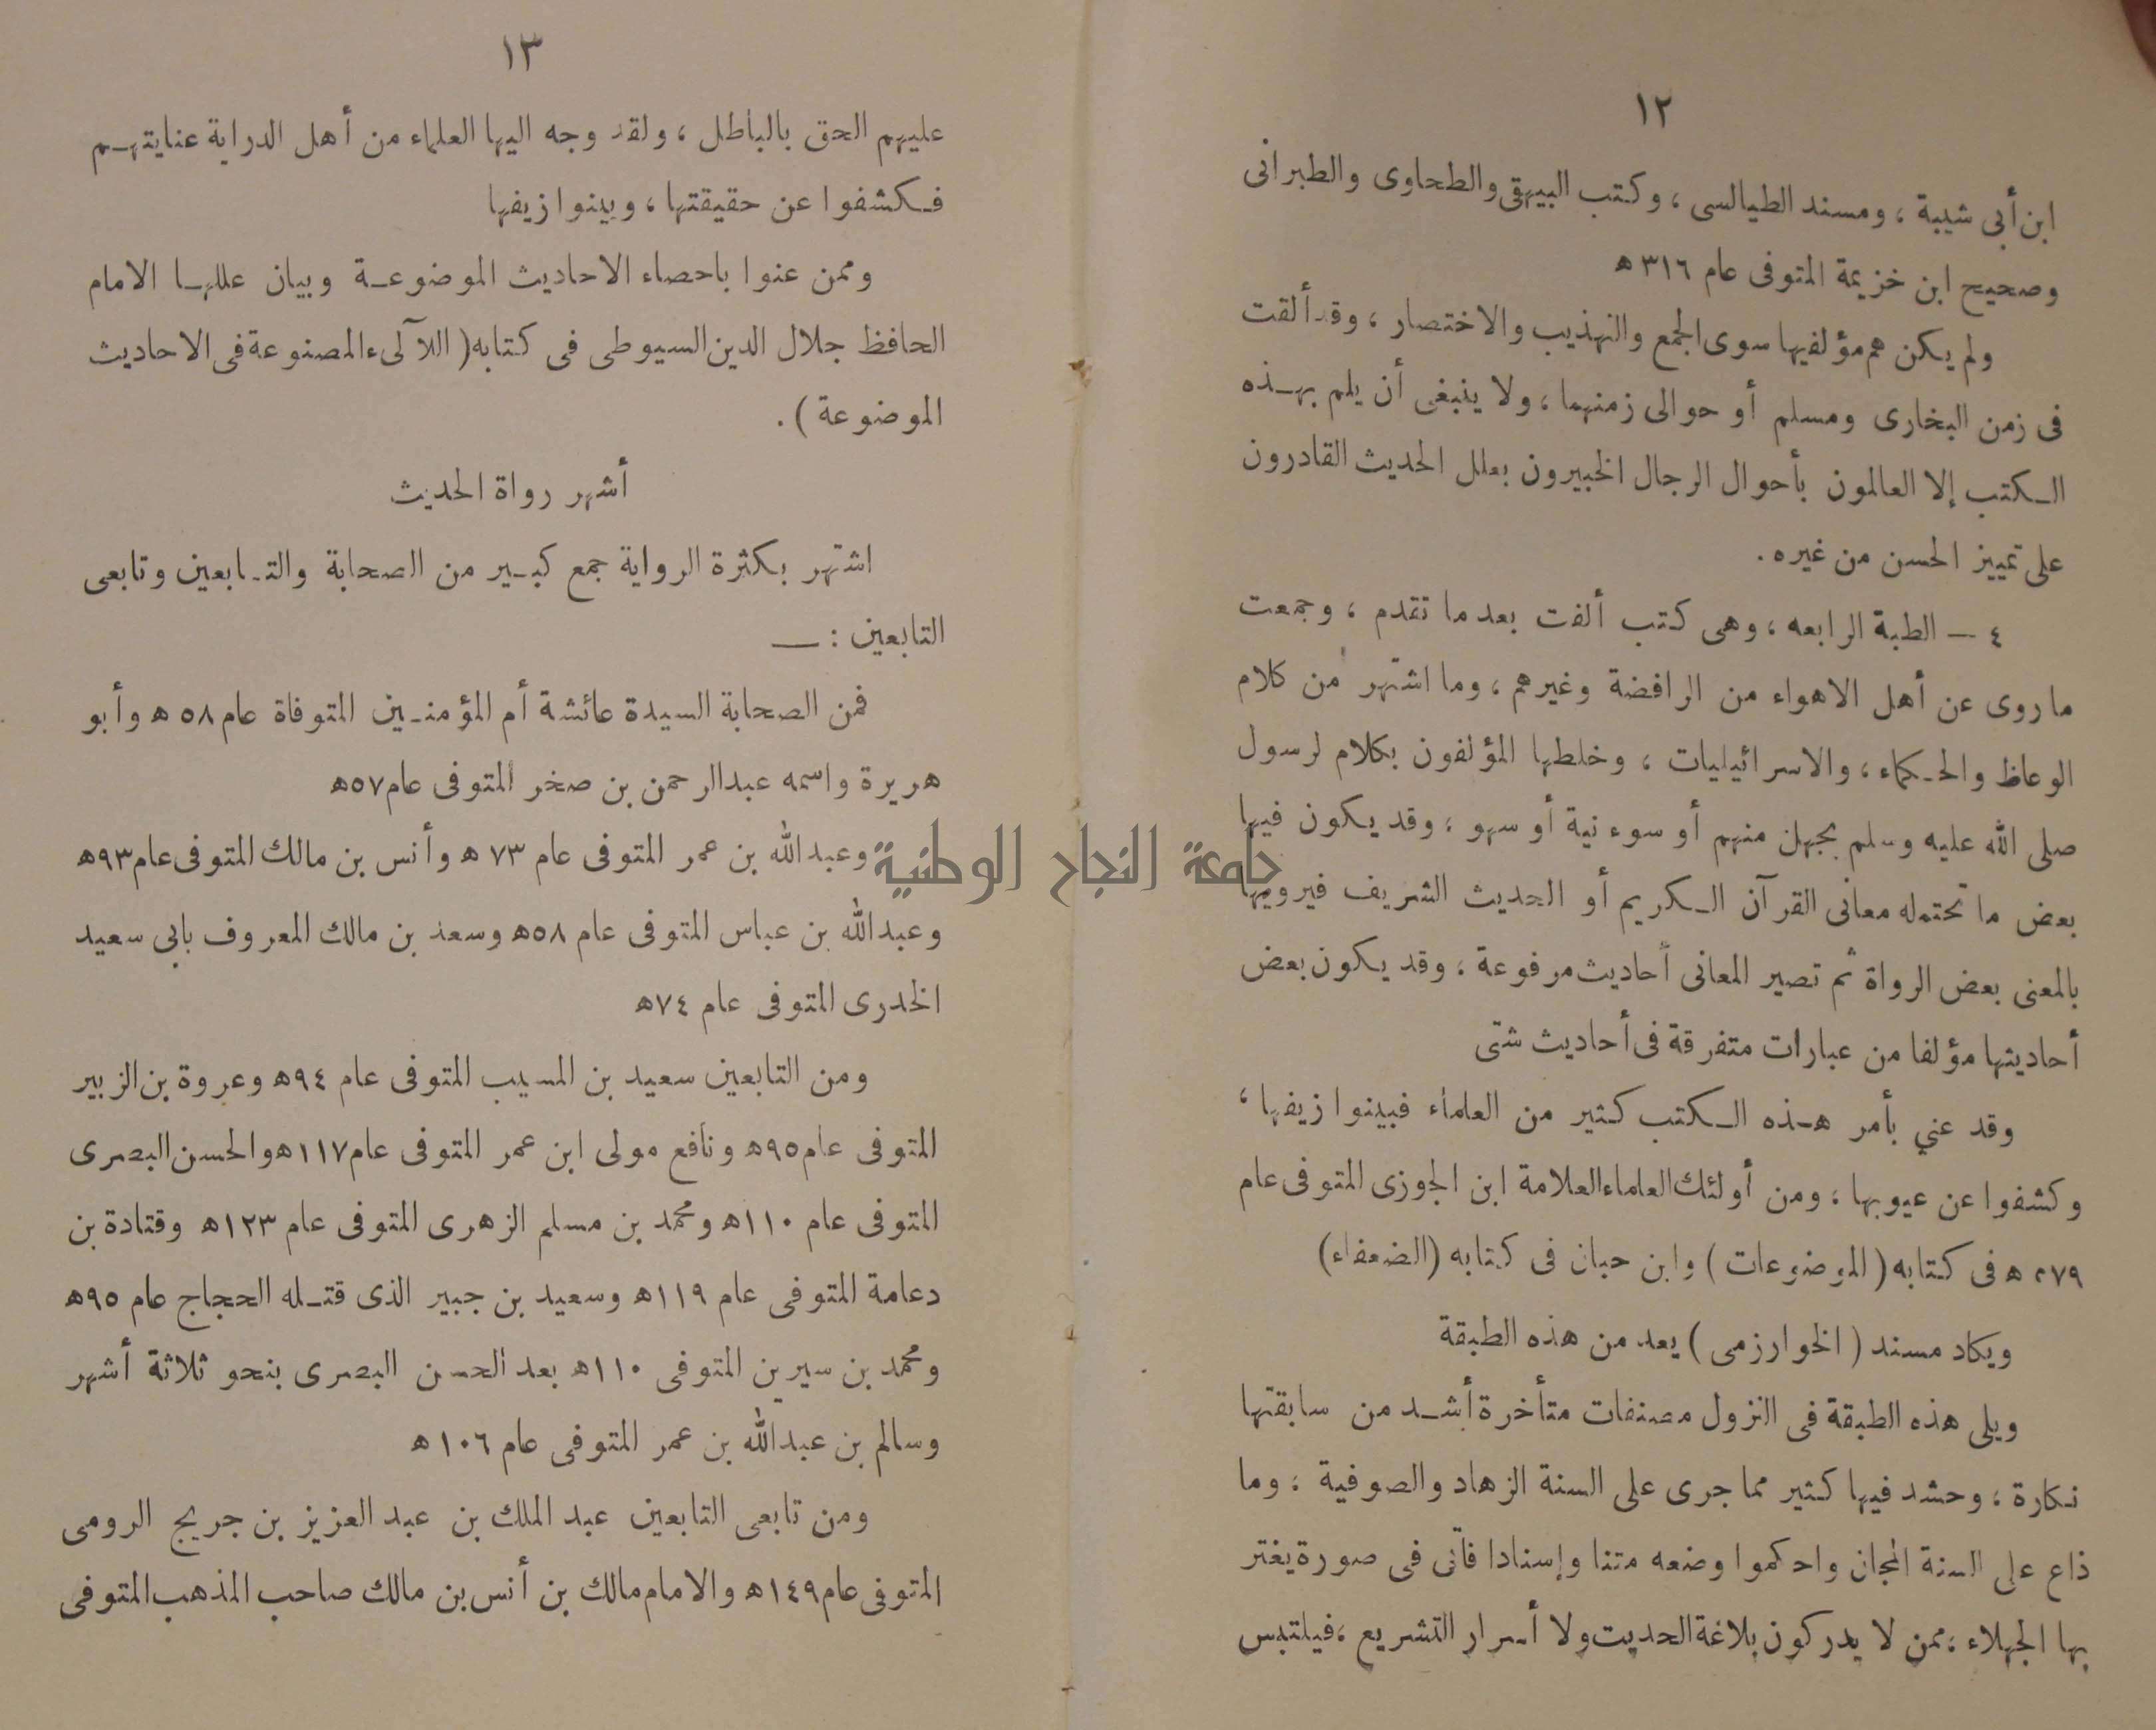 ١٢
ابن أبى شيبة ، ومسند الطيالسى ، وكتب البيهقى والطحاوى والطبرانى
وصحيح ابن خزيمة المتوفى عام ٣١٦ ه
ولم يكن هم مؤلفيها سوى الجمع والتهذيب والاختصار ، وقد ألقت
فى زمن البخارى ومسلم أو حوالى زمنهما ، ولا ينبغى أن يلم بهـذه
الـكتب إلا العالمون بأحوال الرجال الخبيرون بعلل الحديث القادرون
على تمييز الحسن من غيره .
٤ — الطبة الرابعه ، وهى كتب ألفت بعد ما تقدم ، وجمعت
ما روى عن أهل الاهواء من الرافضة وغيرهم ، وما اشتهر من كلام
الوعاظ والحـكماء ، والاسرائيليات ، وخلطها المؤلفون بكلام لرسول
صلى الله عليه وسلم بجهل منهم أو سوء نية أو سهو ، وقد يكون فيها
بعض ما تحتمله معانى القرآن الـكريم أو الحديث الشريف فيرويها
بالمعنى بعض الرواة ثم تصير المعانى أحاديث مرفوعة ، وقد يكون بعض
أحاديثها مؤلفا من عبارات متفرقة فى أحاديث شتى
وقد عني بأمر هـذه الـكتب كثير من العلماء فبينوا زيفها ،
وكشفوا عن عيوبها ، ومن أولئك العلماء العلامة ابن الجوزى المتوفى عام
ه فى كتابه ( الموضوعات ) وابن حبان فى كتابه (الضعفاء)
ويكاد مسند ( الخوارزمى ) يعد من هذه الطبقة
ويلى هذه الطبقة فى النزول مصنفات متأخرة أشـد من سابقتها
نكارة ، وحشد فيها كثير مما جرى على السنة الزهاد والصوفية ، وما
ذاع على السنة المجان واحكموا وضعه متنا وإسنادا فأتى فى صورة يغتر
بها الجهلاء ، ممن لا يدركون بلاغة الحديث ولا أسرار التشريع ، فيلتبس
١٣
عليهم الحق بالباطل ، ولقد وجه اليها العلماء من أهل الدراية عنايتهـم
فـكشفوا عن حقيقتها ، وبينوا زيفها
وممن عنوا باحصاء الاحاديث الموضوعـة وبيان عللهـا الامام
الحافظ جلال الدين السيوطى فى كتابه ( اللآلىء المصنوعة فى الاحاديث
الموضوعة ) .
أشهر رواة الحديث
اشتهر بكثرة الرواية جمع كبـير من الصحابة والتـابعين وتابعى
التابعين : —
فمن الصحابة السيدة عائشة أم المؤمنـين المتوفاة عام ٥٨ ه وأبو
هريرة واسمه عبد الرحمن بن صخر المتوفى عام ٥٧ه
وعبد الله بن عمر المتوفى عام ٧٣ ه وأنس بن مالك المتوفى عام ٩٣ه
وعبد الله بن عباس المتوفى عام ٥٨ه وسعد بن مالك المعروف بابى سعيد
الخدرى المتوفى عام ٧٤ه
ومن التابعين سعيد بن المسيب المتوفى عام ٩٤ه وعروة بن الزبير
المتوفى عام ٩٥ه ونافع مولى ابن عمر المتوفى عام ١١٧ه والحسن البصرى
المتوفى عام ١١٠ه ومحمد بن مسلم الزهرى المتوفى عام ١٢٣ه وقتادة بن
دعامة المتوفى عام ١١٩ه وسعيد بن جبير الذى قتـله الحجاج عام ٩٥ه
ومحمد بن سيرين المتوفى ١١٠ه بعد الحسن البصرى بنحو ثلاثة أشهر
وسالم بن عبد الله بن عمر المتوفى عام ١٠٦ه
ومن تابعى التابعين عبد الملك بن عبد العزيز بن جريج الرومى
المتوفى عام ١٤٩ه والامام مالك بن أنس بن مالك صاحب المذهب المتوفى
جامعة النجاح الوطنية